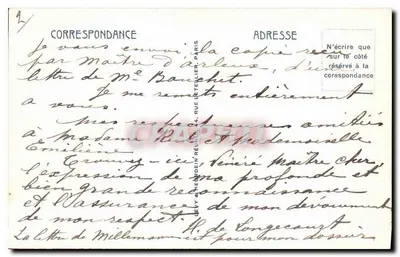 2/
CORRESPONDANCE
ADRESSE
N'écrire que
sur le côté
réservé à la
corespondance
je vous envoi la copie reçu
par Maître d'arleux, d'une
lettre de Me Bouchet.
Je me remets entièrement
a vous.
Mes respectueuses amitiés
à Madame et Mademoiselle
Emilienne
Trouvez-ici Vénéré Maître cher,
l'expression de ma profonde et
bien grande reconnaissance
et l'assurance de mon dévouement
de mon respect. H. de Longecourt
La lettre de Millemann est pour mon dossier